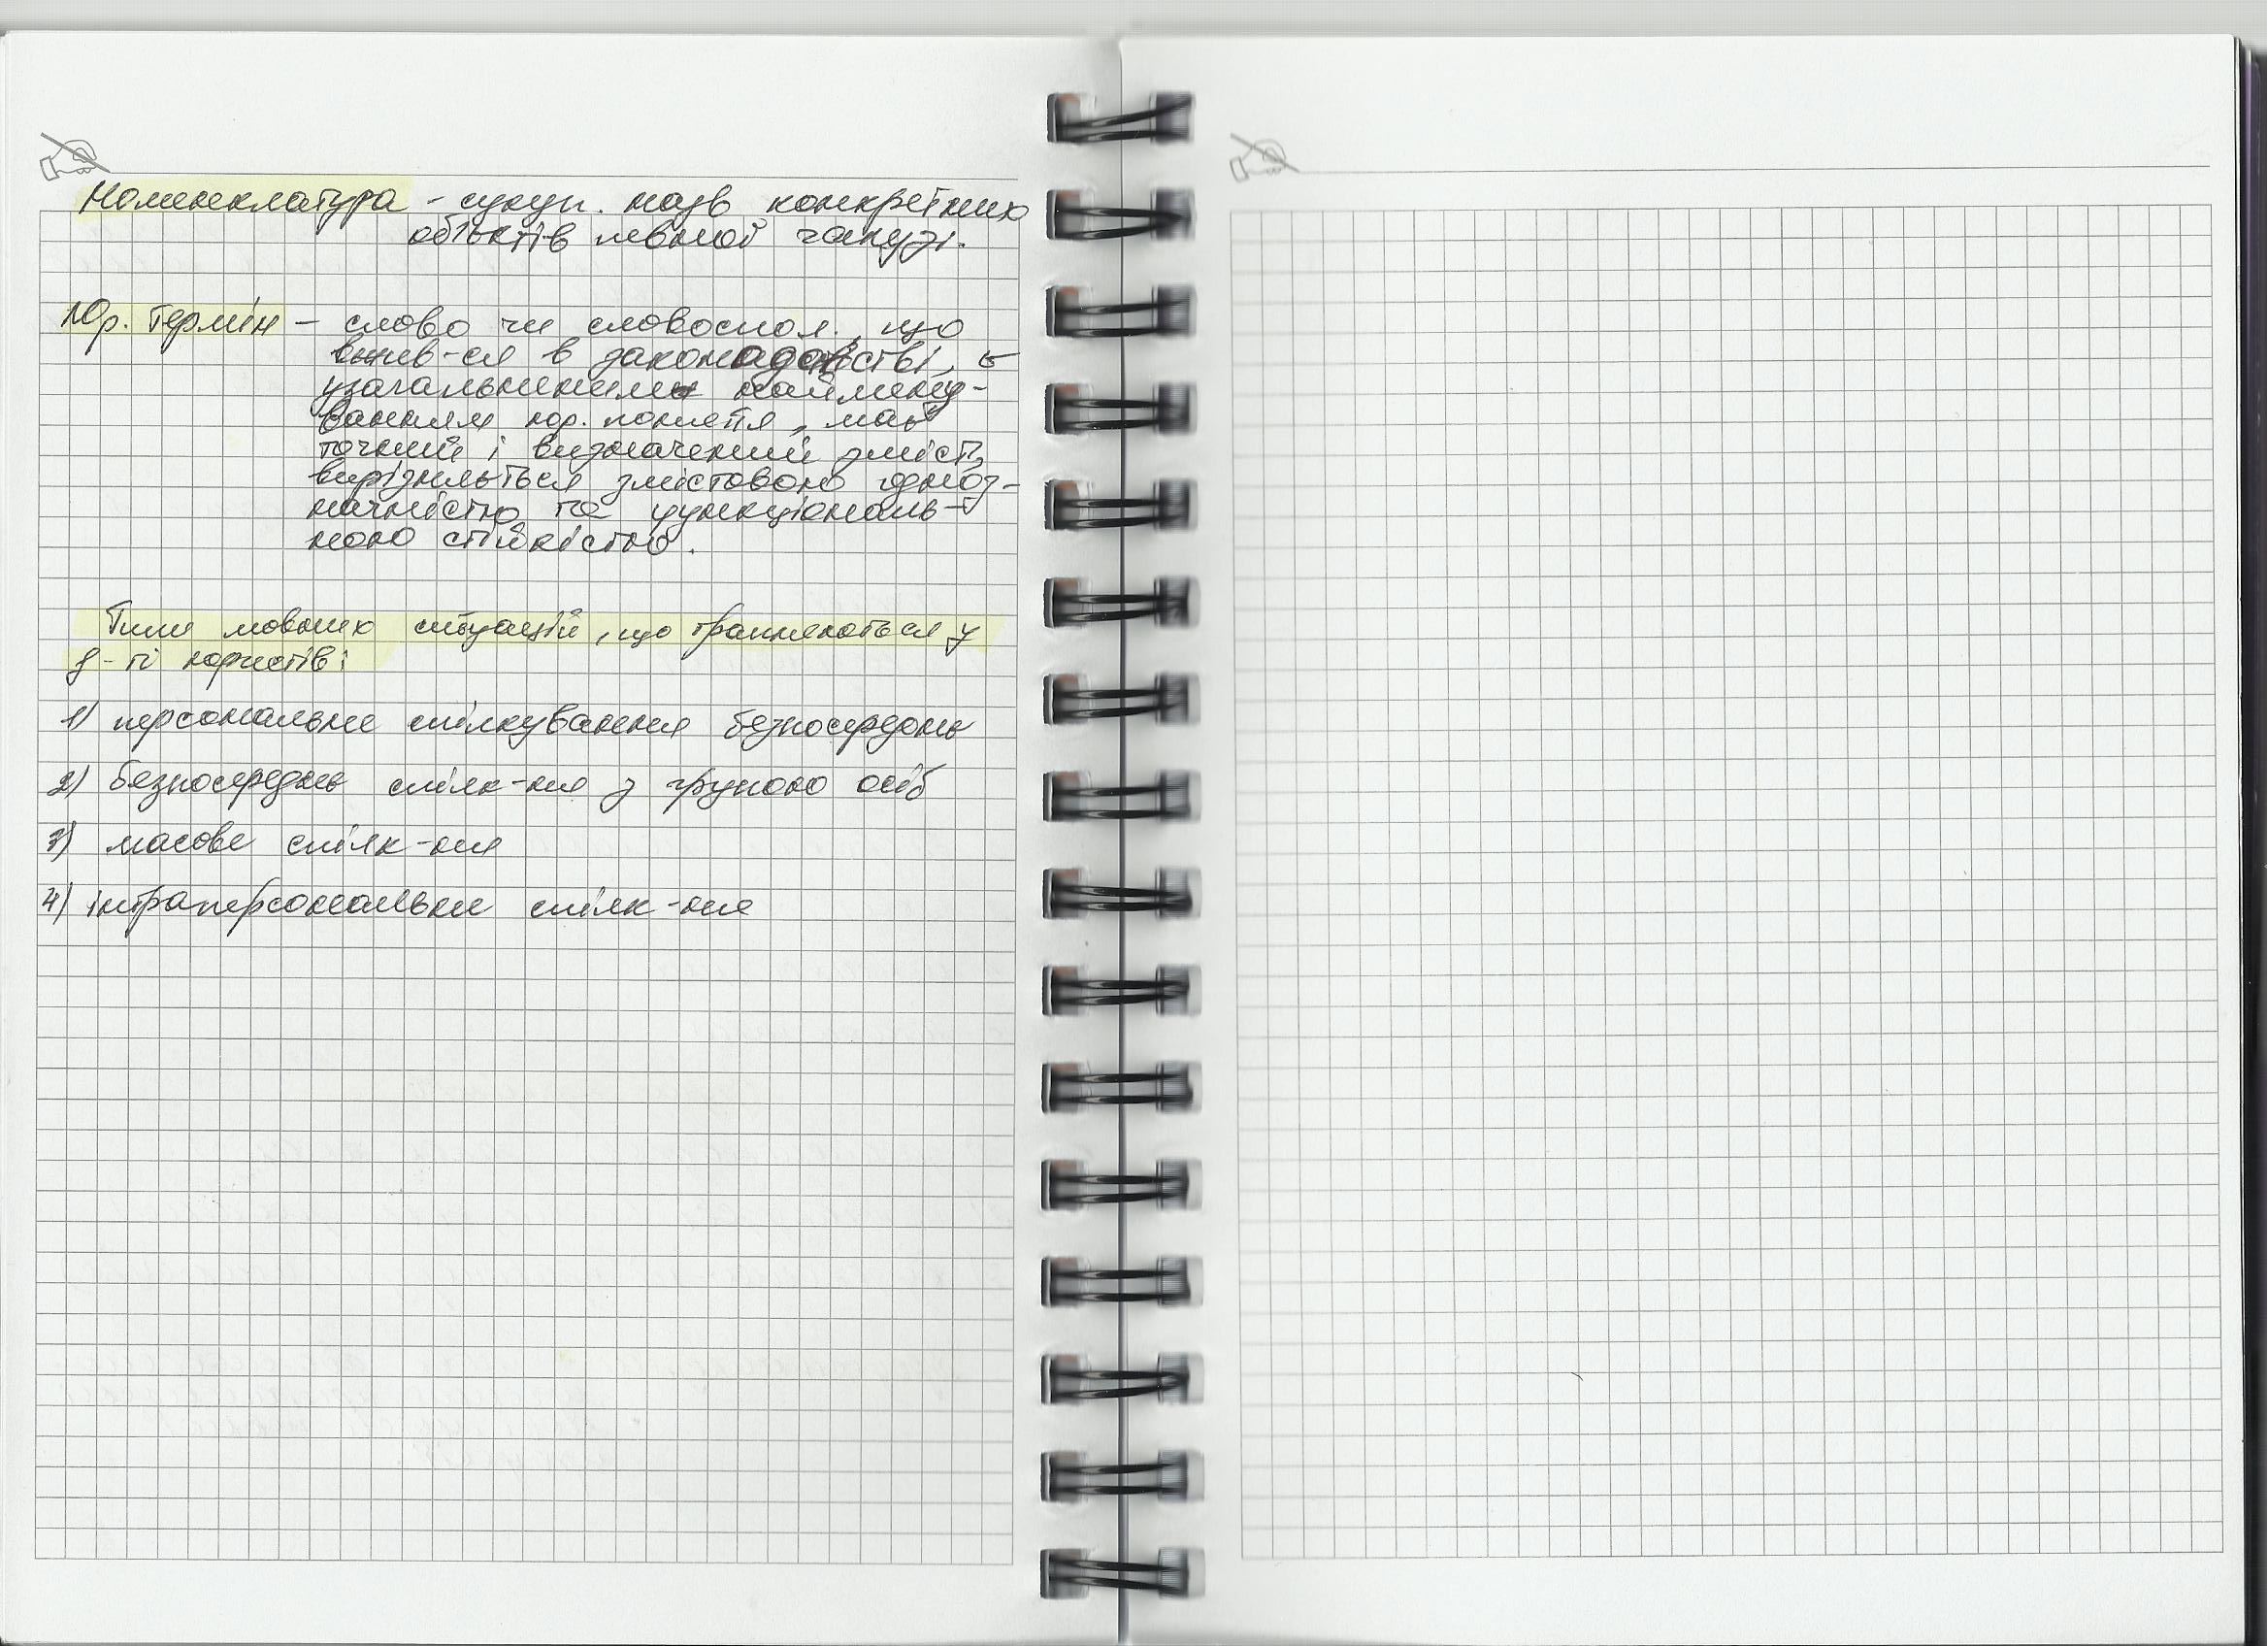 Номенклатура - сукуп. назв конкретних
об'єктів певної галузі.
Юр. термін - слово чи словоспол., що
вжив-ся в законодавстві, є
узагальненим наймену-
ванням юр. поняття, має
точний і визначений зміст,
вирізняється змістовою одноз-
начністю та функціональ-
ною стійкістю.
Типи мовних ситуацій, що трапляються у
д-ті юристів:
1) персональне спілкування безпосередньо
2) безпосереднє спілк-ня з групою осіб
3) масове спілк-ня
4) інтраперсональне спілк-ня